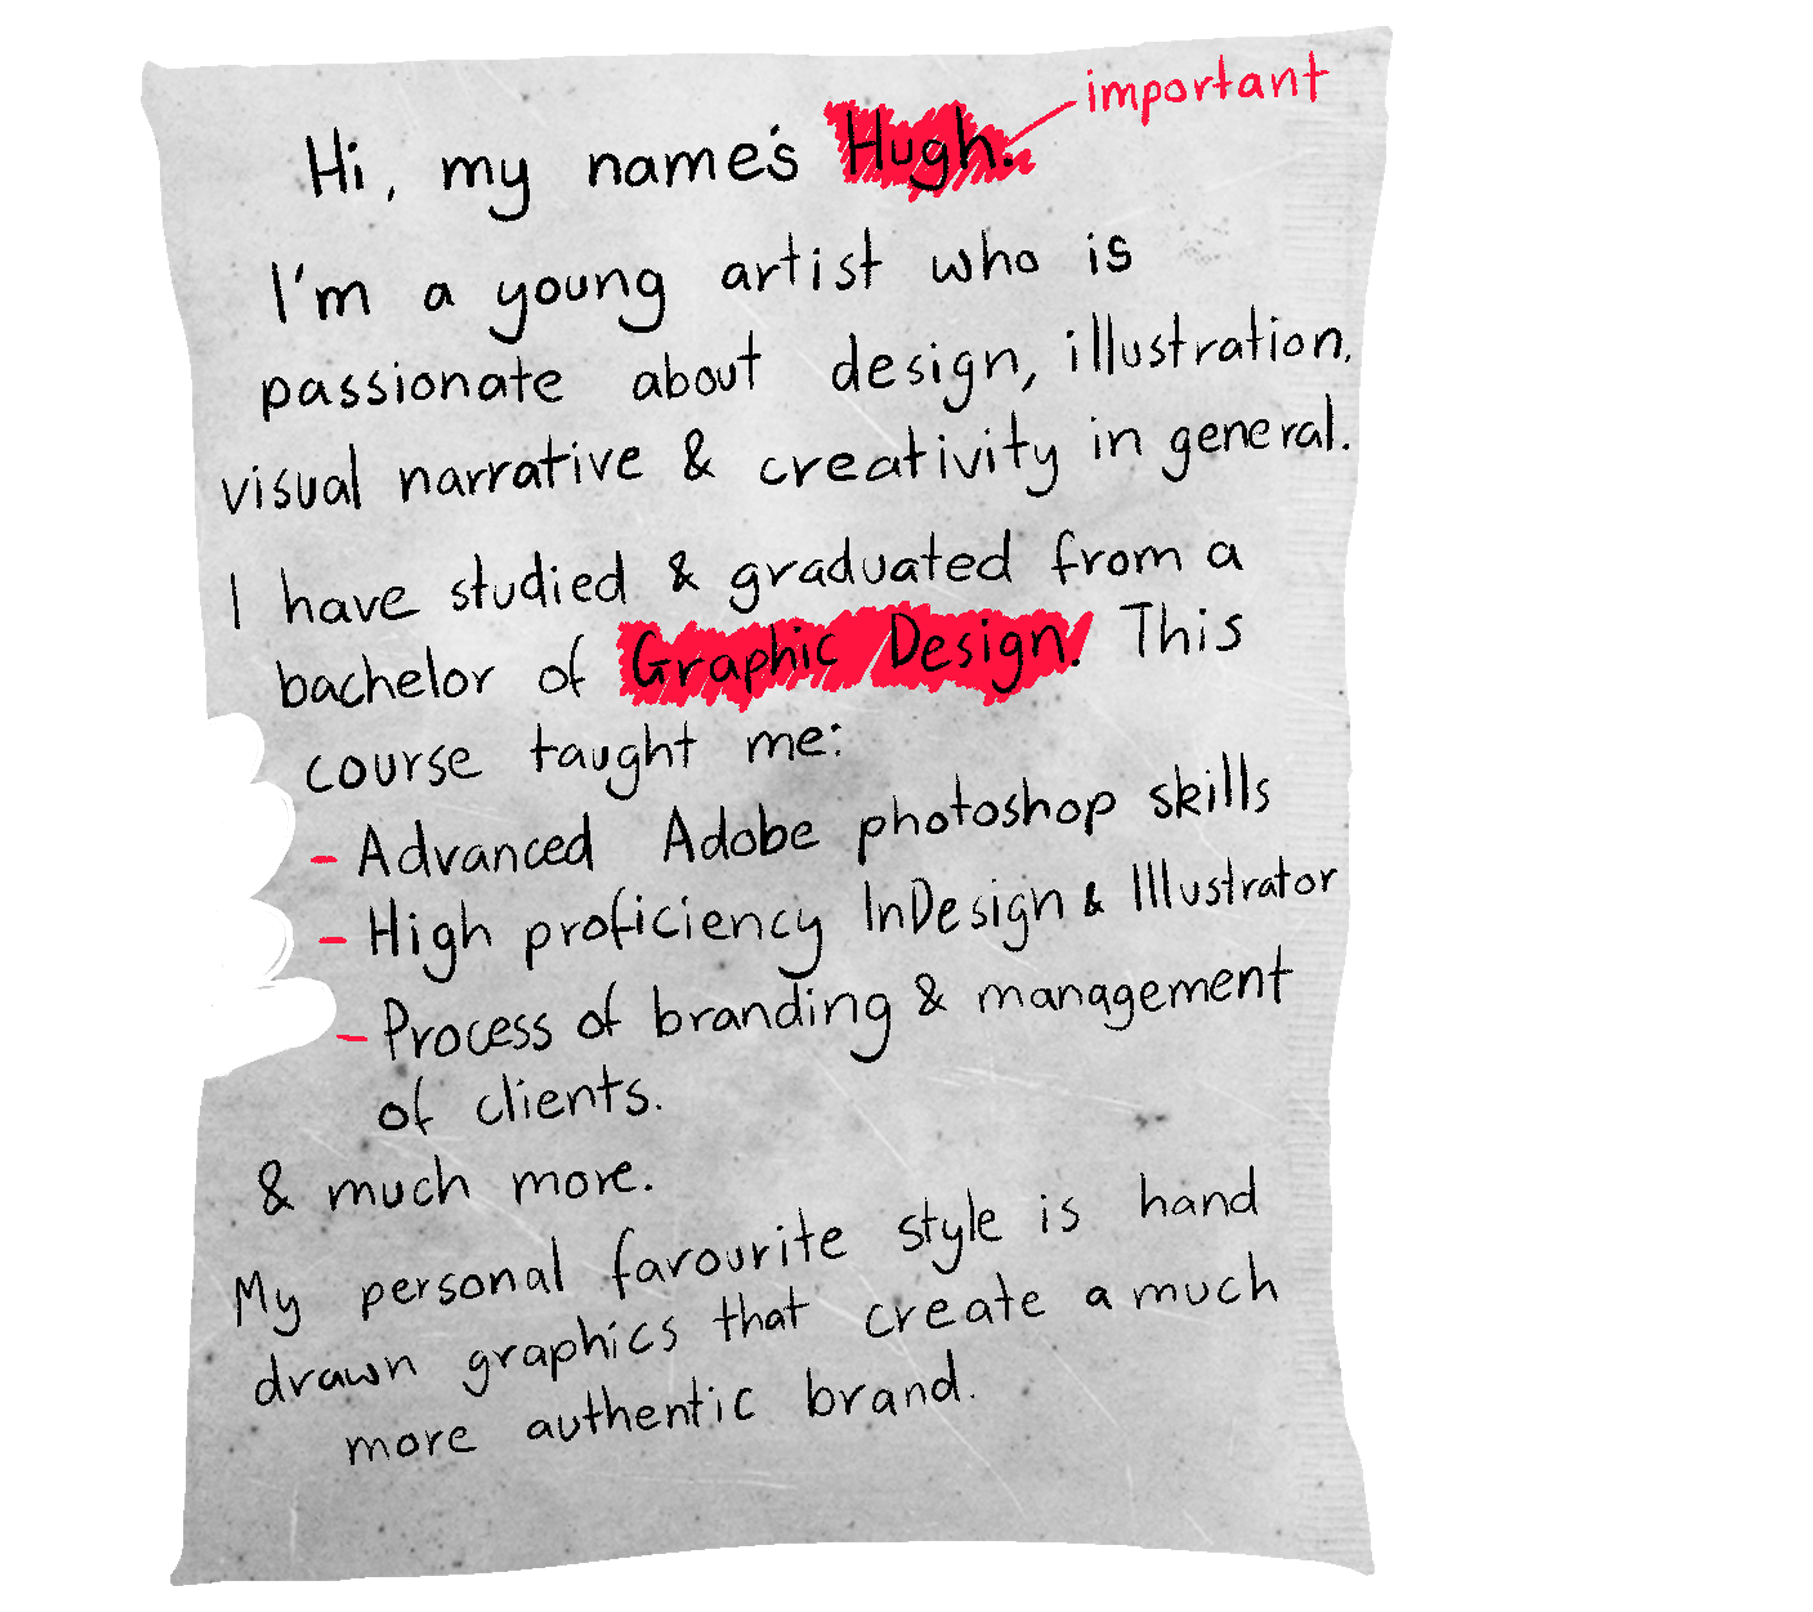 important
Hi, my name's Hugh.
I'm a young artist who is
passionate about design, illustration,
visual narrative & creativity in general.
I have studied & graduated from a
bachelor of Graphic Design. This
course taught me:
- Advanced Adobe photoshop skills
- High proficiency InDesign & Illustrator
- Process of branding & management
of clients.
& much more.
My personal favourite style is hand
drawn graphics that create a much
more authentic brand.